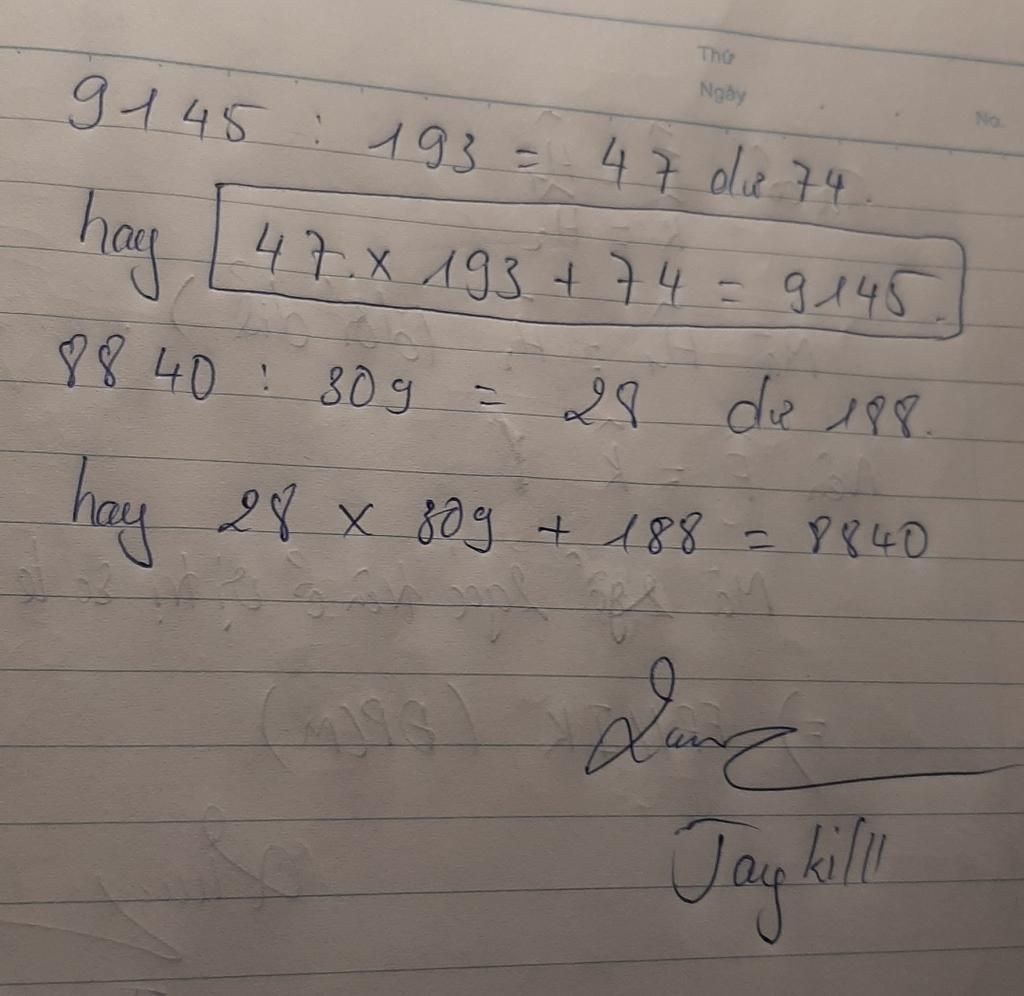 Thứ
Ngày
No.
9145 : 193 = 47 dư 74.
hay 47 x 193 + 74 = 9145.
8840 : 309 = 28 dư 188.
hay 28 x 309 + 188 = 8840
Jaykilll